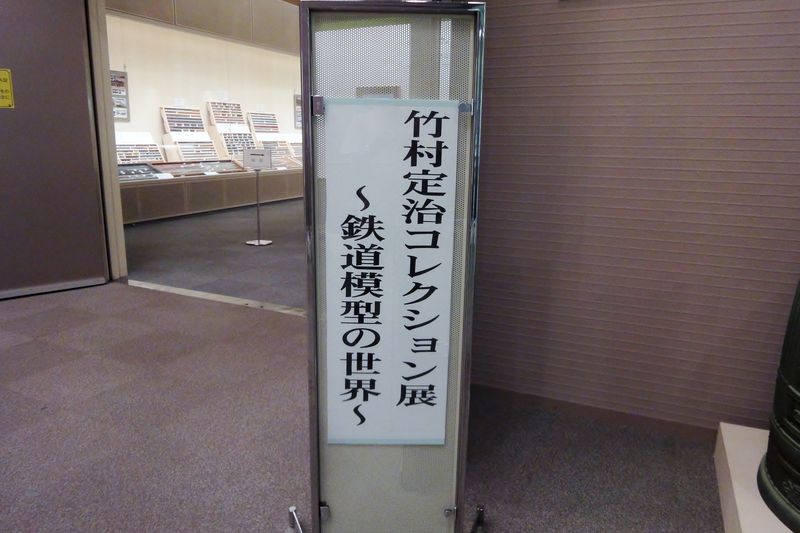 竹村定治コレクション展
～鉄道模型の世界～